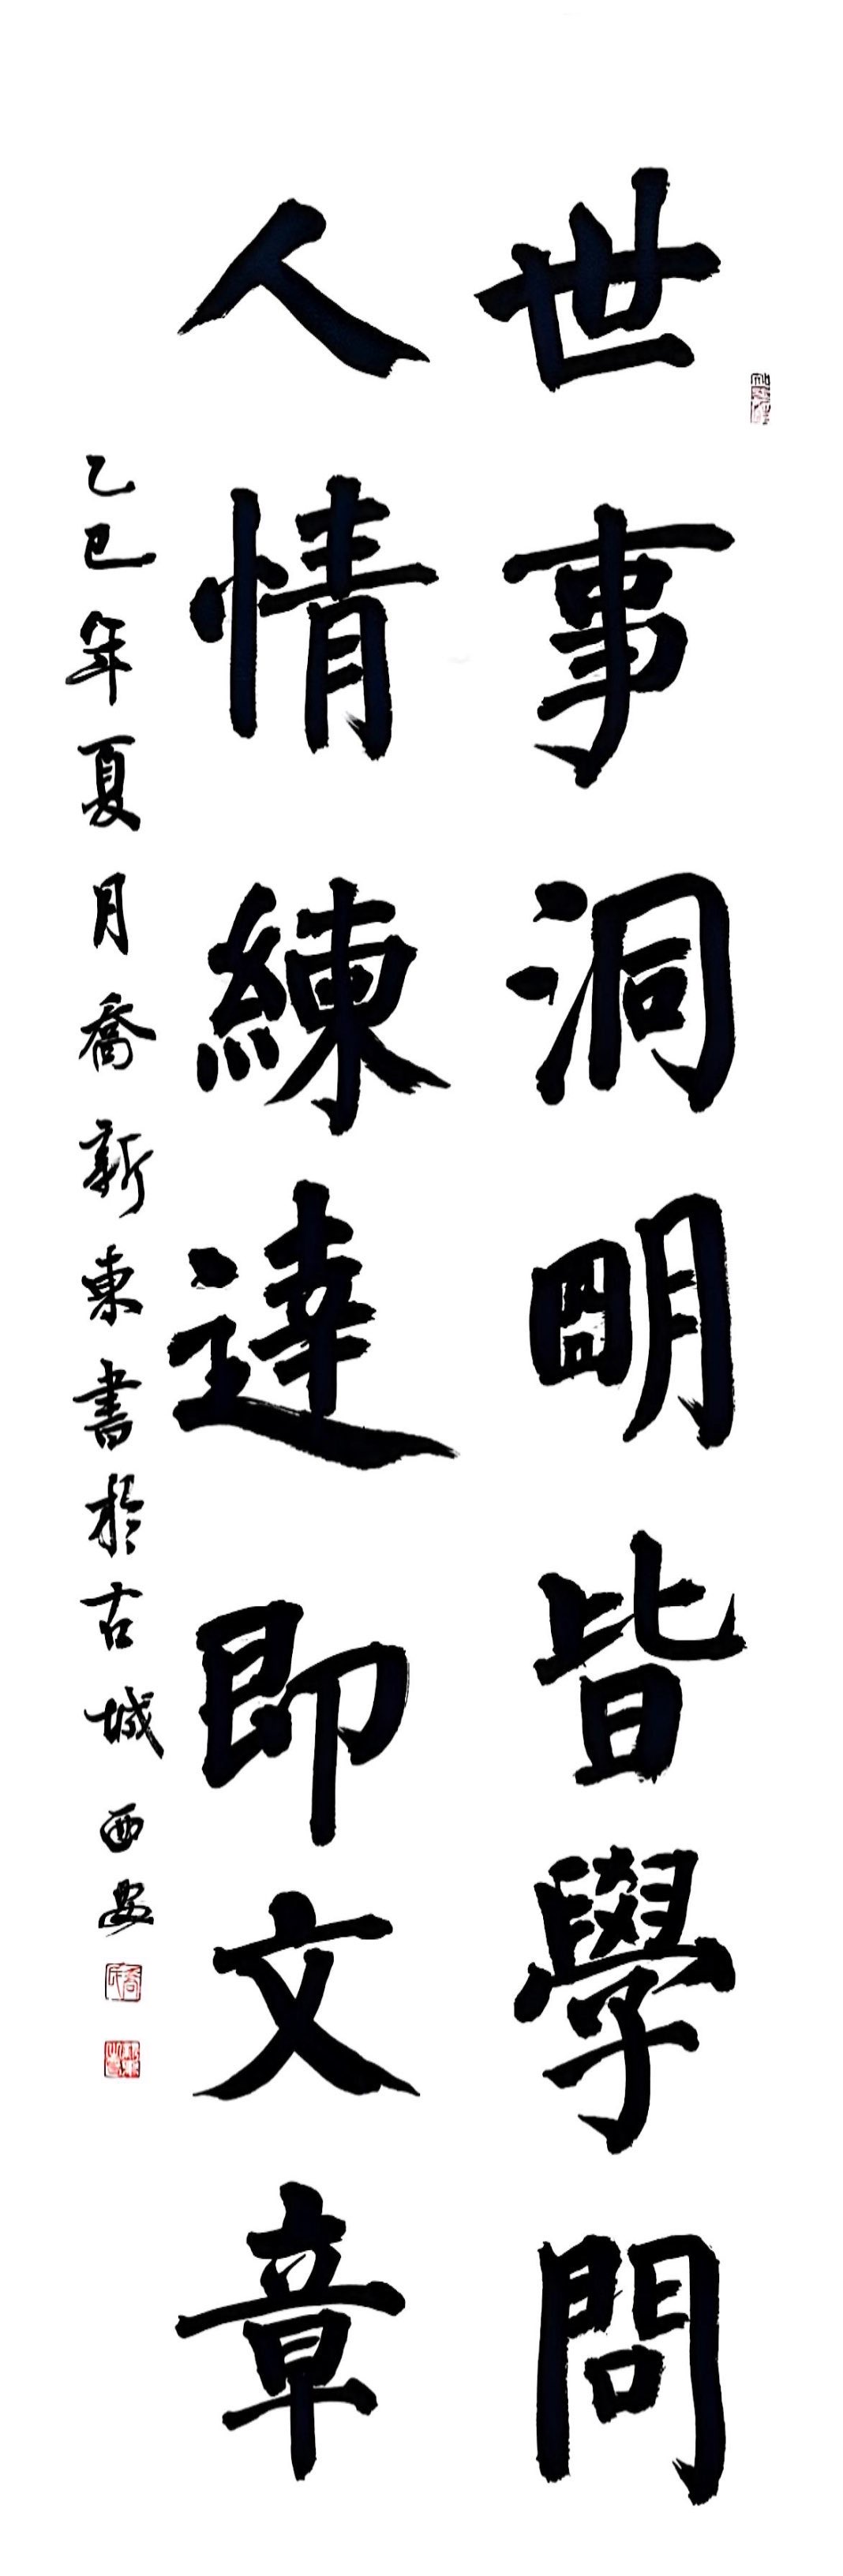 世事洞明皆學問
人情練達即文章
乙巳年夏月喬新東書於古城西安